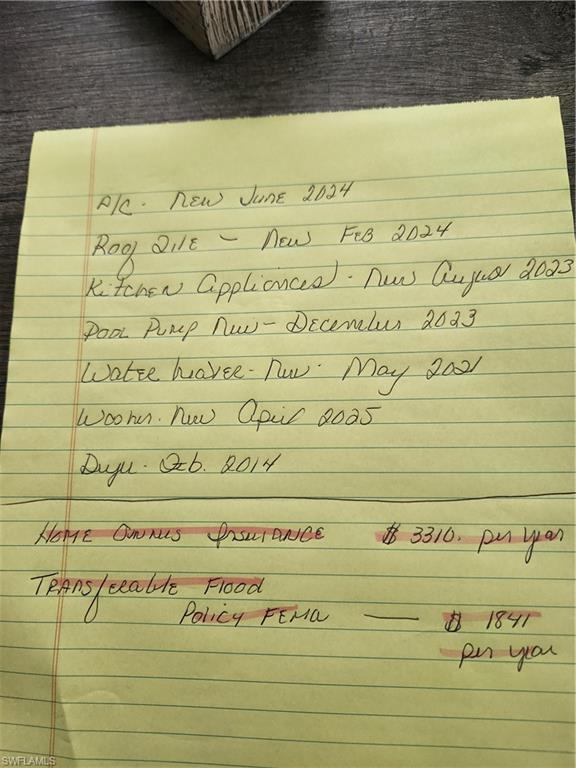 A/C - New June 2024
Roof Tile - New FEB 2024
Kitchen Appliances - New August 2023
Pool Pump New - December 2023
Water heater - New - May 2021
Washer - New April 2025
Dryer - Feb. 2014
HOME OWNERS INSURANCE $ 3310. per year
TRANSferable Flood
Policy FEMA — $ 1841
per year
SWFLAMLS